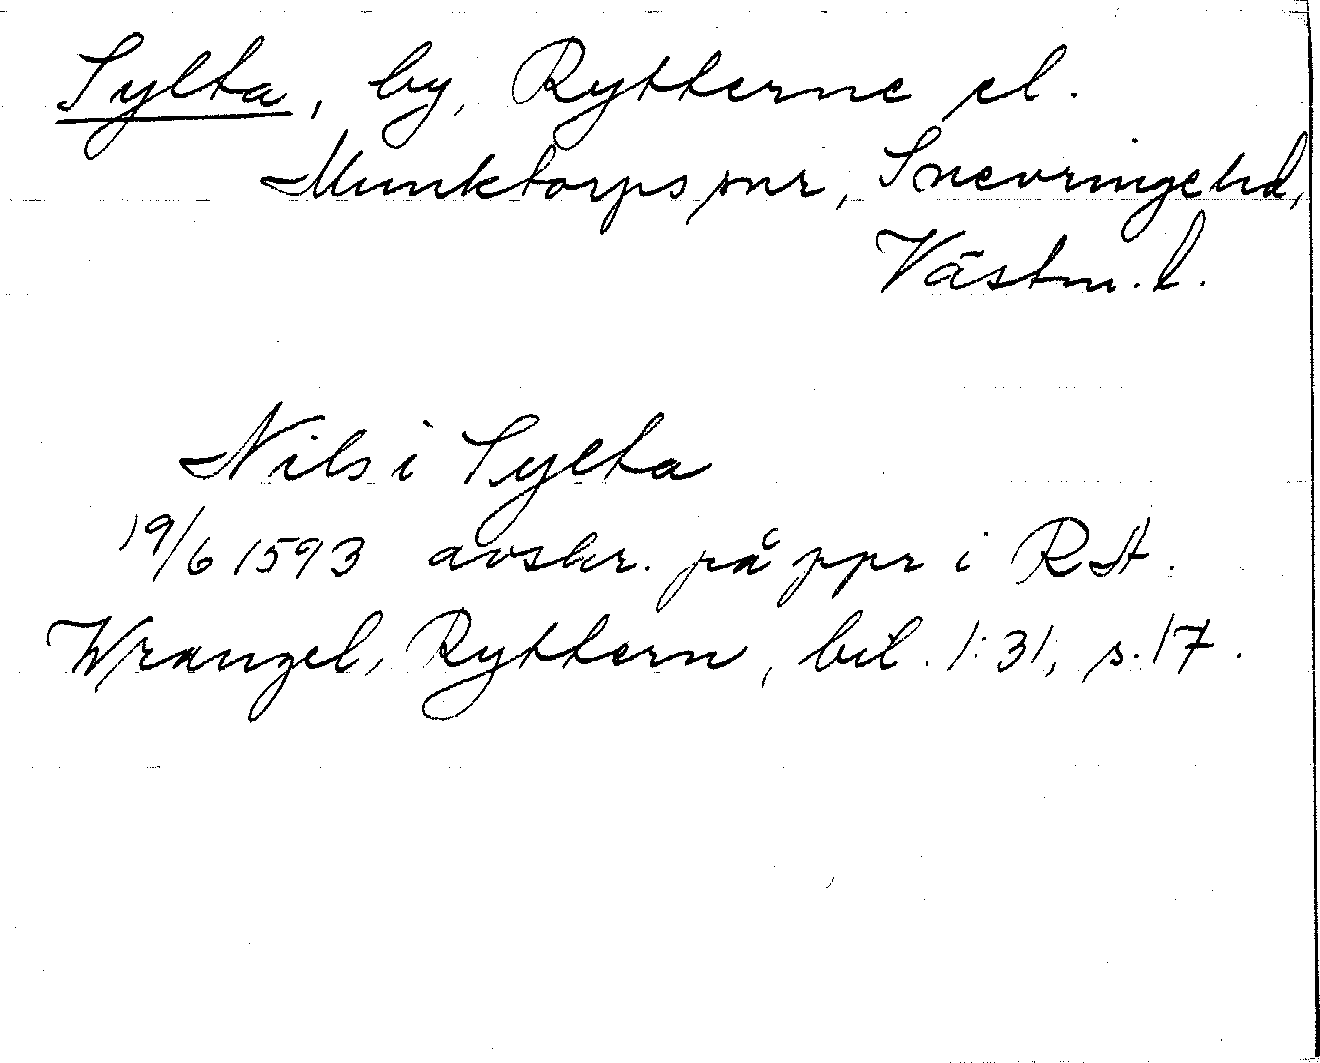 Sylta, by, Rytterne el.
Munktorps snr, Snevringe hd,
Västm. l.
Nils i Sylta
19/6 1593 avskr. på ppr i RA.
Wrangel, Ryttern, bil. 1:31, s. 17.